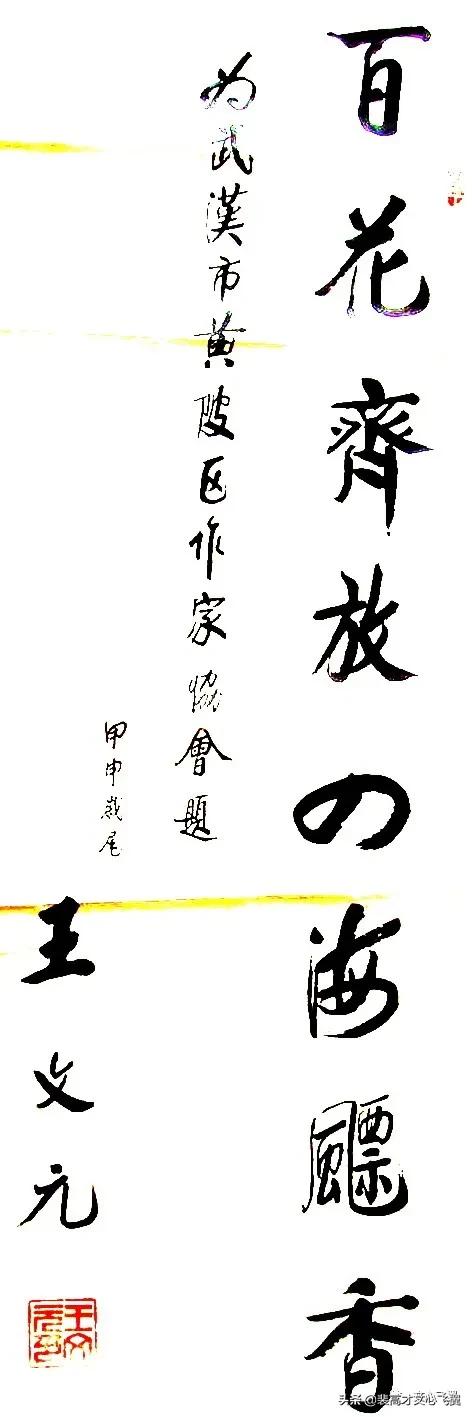 百花齊放四海飃香
为武漢市黄陂区作家恊會題
甲申歲尾
王文元
王文元印
头条 @裴高才文心飞